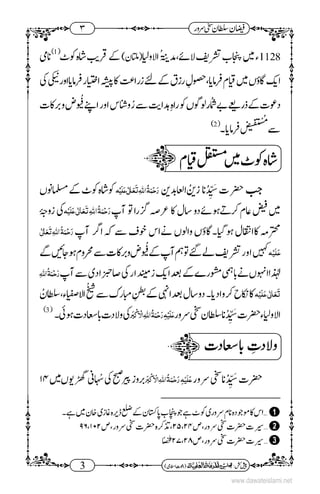 فیضانِ سلطان سخی سرور
۳
1128، میں پنجاب تشریف لائے، مدینۃ الاولیاء (ملتان) کے قریب شاہ کوٹ(1) نامی
ایک گاؤں میں قیام فرمایا، حصولِ رزق کے لئے زراعت کا پیشہ اختیار فرمایا اور نیکی کی
دعوت کے ذریعے بے شمار لوگوں کو راہِ ہدایت سے روشناس اور اپنے فیوض و برکات
سے مستفیض فرمایا۔(2)
شاہ کوٹ میں مستقل قیام
جب حضرت سیّدنا زین العابدین رحمۃ اللہ تعالیٰ علیہ کو شاہ کوٹ کے مسلمانوں
میں فیض عام کرتے ہوئے دو سال کا عرصہ گزرا تو آپ رحمۃ اللہ تعالیٰ علیہ کی زوجۂ
محترمہ کا انتقال ہو گیا۔ گاؤں والوں نے اس خوف سے کہ اگر آپ رحمۃ اللہ تعالیٰ
علیہ کہیں اور تشریف لے گئے تو ہم آپ کے فیوض و برکات سے محروم ہو جائیں گے
لہٰذا انہوں نے باہمی مشورے کے بعد ایک زمیندار کی صاحبزادی سے آپ رحمۃ اللہ
تعالیٰ علیہ کا نکاح کروا دیا۔ دو سال بعد انہی کے بطن مبارک سے شیخ الاصفیاء، سلطان
الاولیاء، حضرت سیّدنا سلطان سخی سرور رحمۃ اللہ تعالیٰ علیہ کی ولادت باسعادت ہوئی۔(3)
ولادتِ باسعادت
حضرت سیّدنا سخی سرور رحمۃ اللہ تعالیٰ علیہ کی سہانی صبح پیر بروز گھڑیوں میں ۱۴
1 … اس کا موجودہ نام سروری کوٹ ہے جو پنجاب پاکستان کے ضلع ڈیرہ غازی خان میں ہے۔
2 … سیرت حضرت سخی سرور، ص ۲۴، ۲۵، تذکرہ حضرت سخی سرور، ص ۱۰۲، ۹۶
3 … سیرت حضرت سخی سرور، ص ۲۸، ۲۷ ملخصاً
3
www.dawateislami.net